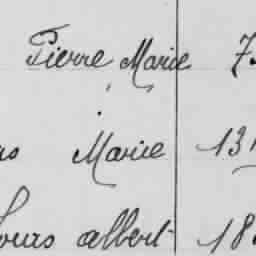 Pierre Marie 7
Marie 131
Louis albert 18